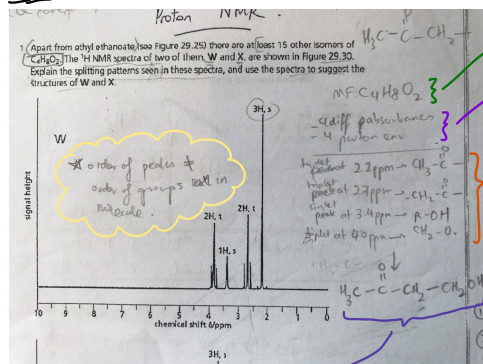 Proton NMR.
1 Apart from ethyl ethanoate (see Figure 29.25) there are at least 15 other isomers of
C4H8O2. The ¹H NMR spectra of two of them, W and X, are shown in Figure 29.30.
Explain the splitting patterns seen in these spectra, and use the spectra to suggest the
structures of W and X.
H3C-C-CH2-
MF: C4H8O2
- 4 diff absorbances
- 4 proton env
W
3H, s
* order of peaks ≠
order of groups in
molecule.
2H, t
2H, t
1H, s
signal height
peak at 2.2ppm → CH3-C-
O
triplet
peak at 2.7ppm → -CH2-C-
O
singlet
peak at 3.4ppm → R-OH
triplet at 4.0ppm → CH2-O-
O
H3C-C-CH2-CH2OH
10 9 8 7 6 5 4 3 2 1 0
chemical shift δ/ppm
3H, s